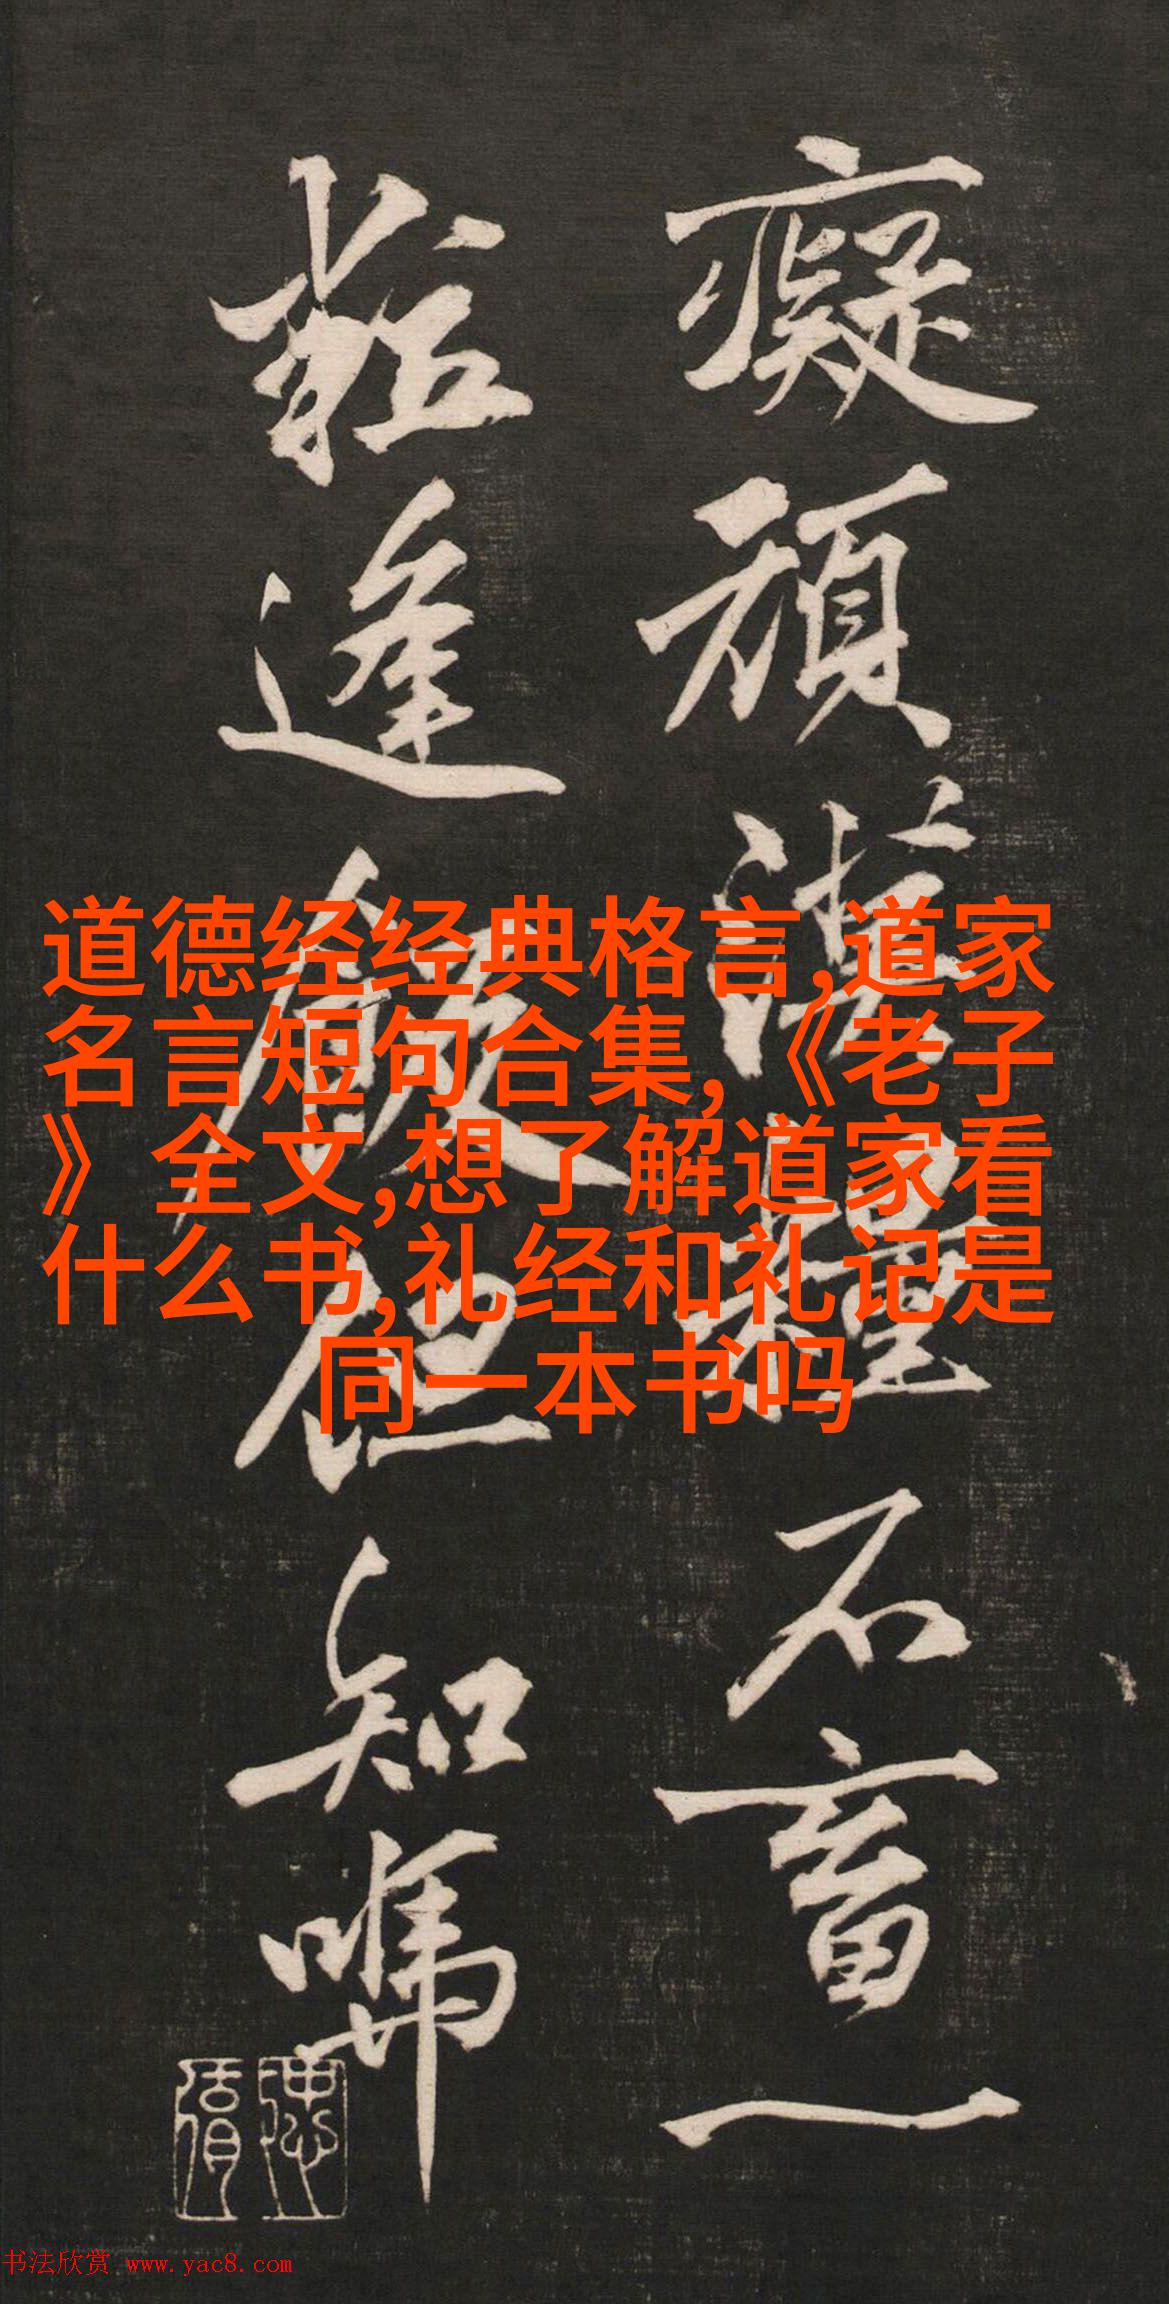 癡頑漢糧不畜一
粒逢飯但知
道德经经典格言,道家
名言短句合集,《老子
》全文,想了解道家看
什么书,礼经和礼记是
同一本书吗
书法欣赏 www.yac8.com